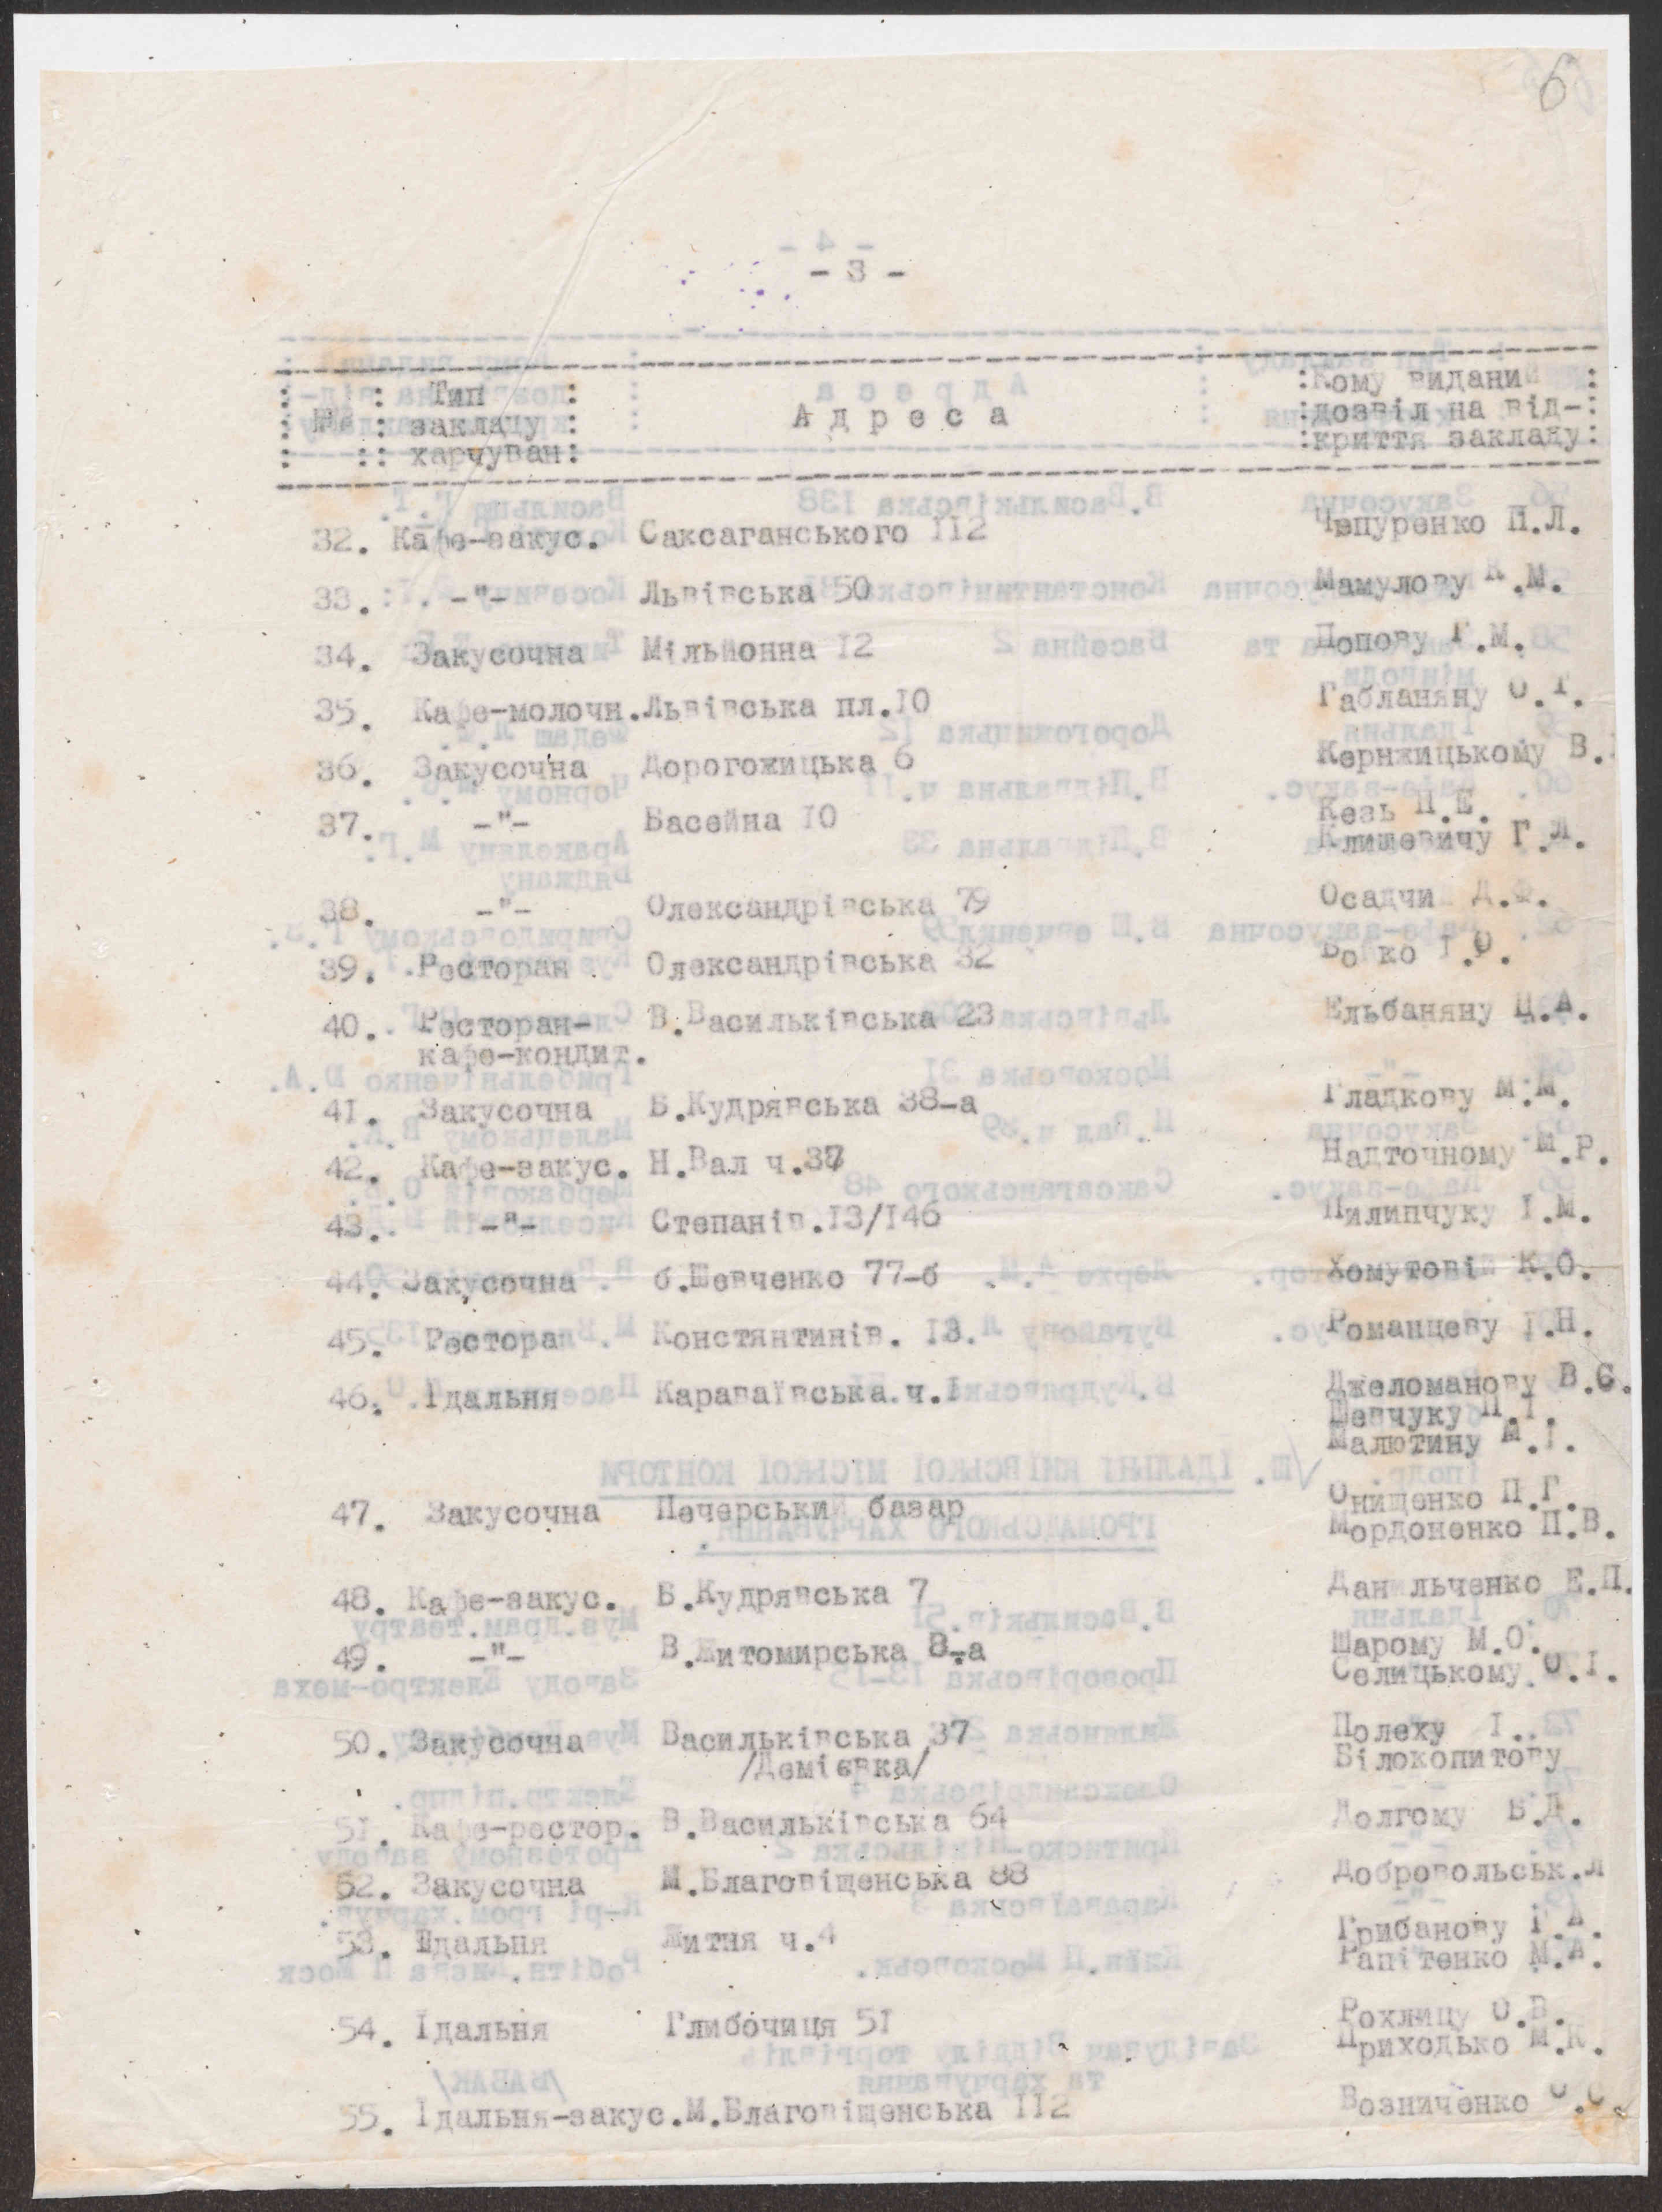 6
- 3 -
: : Тип : :Кому видани :
: №№ : закладу : А д р е с а :дозвіл на від-:
: :: харчуван: :криття закладу:
32. Кафе-закус. Саксаганського 112 Чепуренко П.Л.
33. -"- Львівська 50 Мамулову К.М.
34. Закусочна Мільйонна 12 Попову Г.М.
35. Кафе-молочн. Львівська пл.10 Габланяну О.Т.
36. Закусочна Дорогожицька 6 Кернжицькому В.
37. -"- Басейна 10 Кезь П.Е.
Клишевичу Г.Л.
38. -"- Олександрівська 79 Осадчи Д.Ф.
39. Ресторан Олександрівська 32 Бойко І.О.
40. Ресторан- В.Васильківська 23 Ельбаняну Ц.А.
кафе-кондит.
41. Закусочна Б.Кудрявська 38-а Гладкову М.М.
42. Кафе-закус. Н.Вал ч.37 Надточному М.Р.
43. -"- Степанів.13/146 Пилипчуку І.М.
44. Закусочна б.Шевченко 77-б Хомутові К.О.
45. Ресторан Констянтинів. 13. Романцеву І.Н.
46. Їдальня Караваївська.ч.1 Джеломанову В.С.
Шевчуку П.І.
Малютину М.І.
47. Закусочна Печерський базар Онищенко П.Г.
Мордоненко П.В.
48. Кафе-закус. Б.Кудрявська 7 Данильченко Е.П.
49. -"- В.Житомирська 8-а Шарому М.О.
Селицькому О.І.
50. Закусочна Васильківська 37 Полеху І..
/Деміевка/ Білокопитову
51. Кафе-рестор. В.Васильківська 64 Долгому Б.Д.
52. Закусочна М.Благовіщенська 88 Добровольськ.Л
53. Їдальня Житня ч.4 Грибанову Г.А.
Рапітенко М.А.
54. Їдальня Глибочиця 51 Рохлицу О.В.
Приходько М.К.
55. Їдальня-закус. М.Благовіщенська 112 Возниченко О.С.